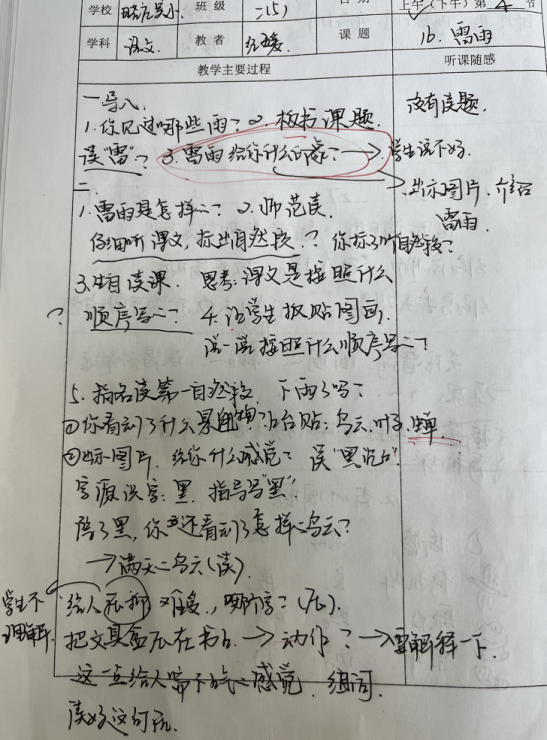 学校 班级 二(5) 上午(下午)第4节
学科 语文 教者 课题 16.雷雨
教学主要过程 听课随感
一导入.
1.你见过哪些雨? 2.板书课题. 没有读题.
读"雷"? 3.雷雨给你什么印象? → 学生说不好.
→出示图片.介绍
雷雨.
二.
1.雷雨是怎样的? 2.师范读.
仔细听课文,标出自然段.? 你标了几个自然段?
3.生自读课. 思考:课文是按照什么
? 顺序写的? 4.让学生板贴图画.
说一说按照什么顺序写的?
5.指名读第一自然段. 下雨了吗?
①你看到了什么景物? 上台贴:乌云.叶子.蝉
②出示图片.给你什么感觉? 读"黑沉沉".
字源识字:黑.指导写"黑".
除了黑,你还看到了怎样的乌云?
→满天的乌云(读).
学生不
理解 给人 难受.,哪个字?(压).
把文具盒压在书上. → 动作? → 要解释一下.
这一点给人喘不过气的感觉.组词.
读好这句话.